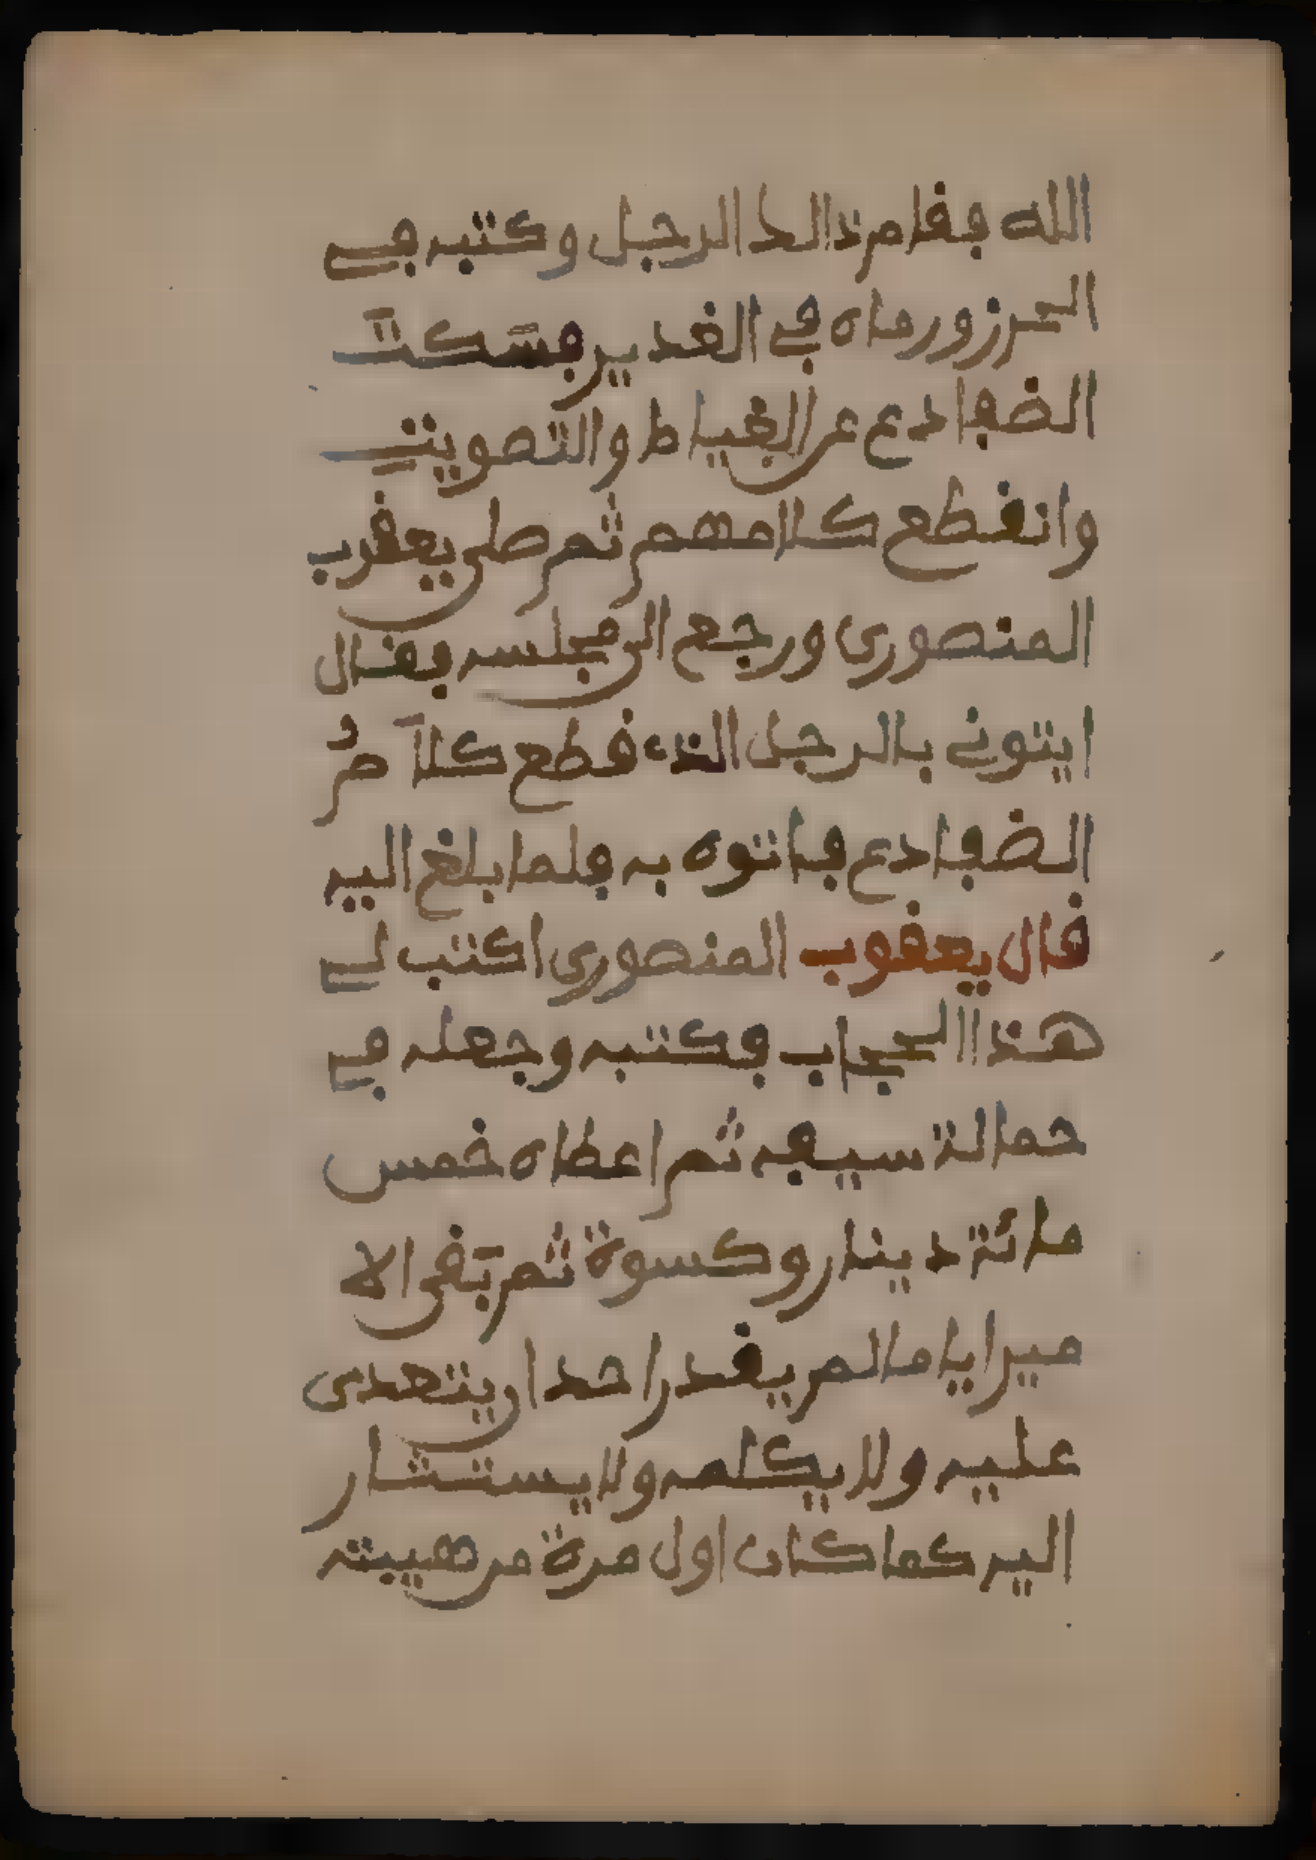 الله فقام ذالك الرجل وكتبه في
الحرز ورماه في الغدير فسكتت
الضفادع عن الغياط والتصويت
وانقطع كلامهم ثم صلى يعقوب
المنصوري ورجع الى مجلسه فقال
ايتوني بالرجل الذي قطع كلام
الضفادع فاتوه به فلما بلغ اليه
قال يعقوب المنصوري اكتب لي
هذا الحجاب فكتبه وجعله في
حمالة سيفه ثم اعطاه خمس
مائة دينار وكسوة ثم بقى الا
مير اياما لم يقدر احد ان يتعدى
عليه ولا يكلمه ولا يستشار
اليه كما كان اول مرة من هيبته